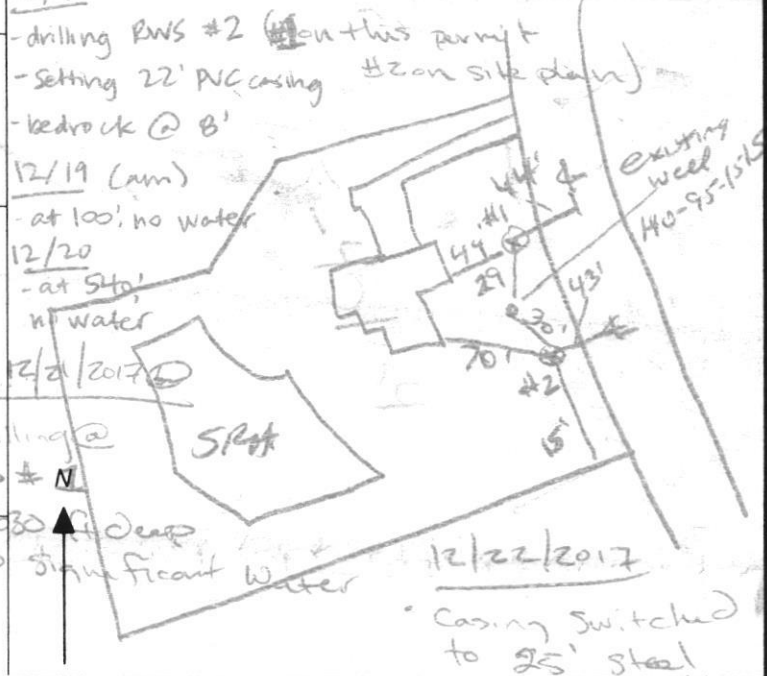 -drilling RWS #2 (#1 on this permit
#2 on site plan)
-Setting 22' PVC casing
-bedrock @ 8'
12/19 (am)
-at 100', no water
12/20
-at 540'
no water
12/21/2017
ling @
#
030 ft deep
significant water
N
SRA
44'
#1
44'
29
30'
43'
70'
#2
15'
existing
well
HO-95-1515
12/22/2017
· Casing switched
to 25' steel